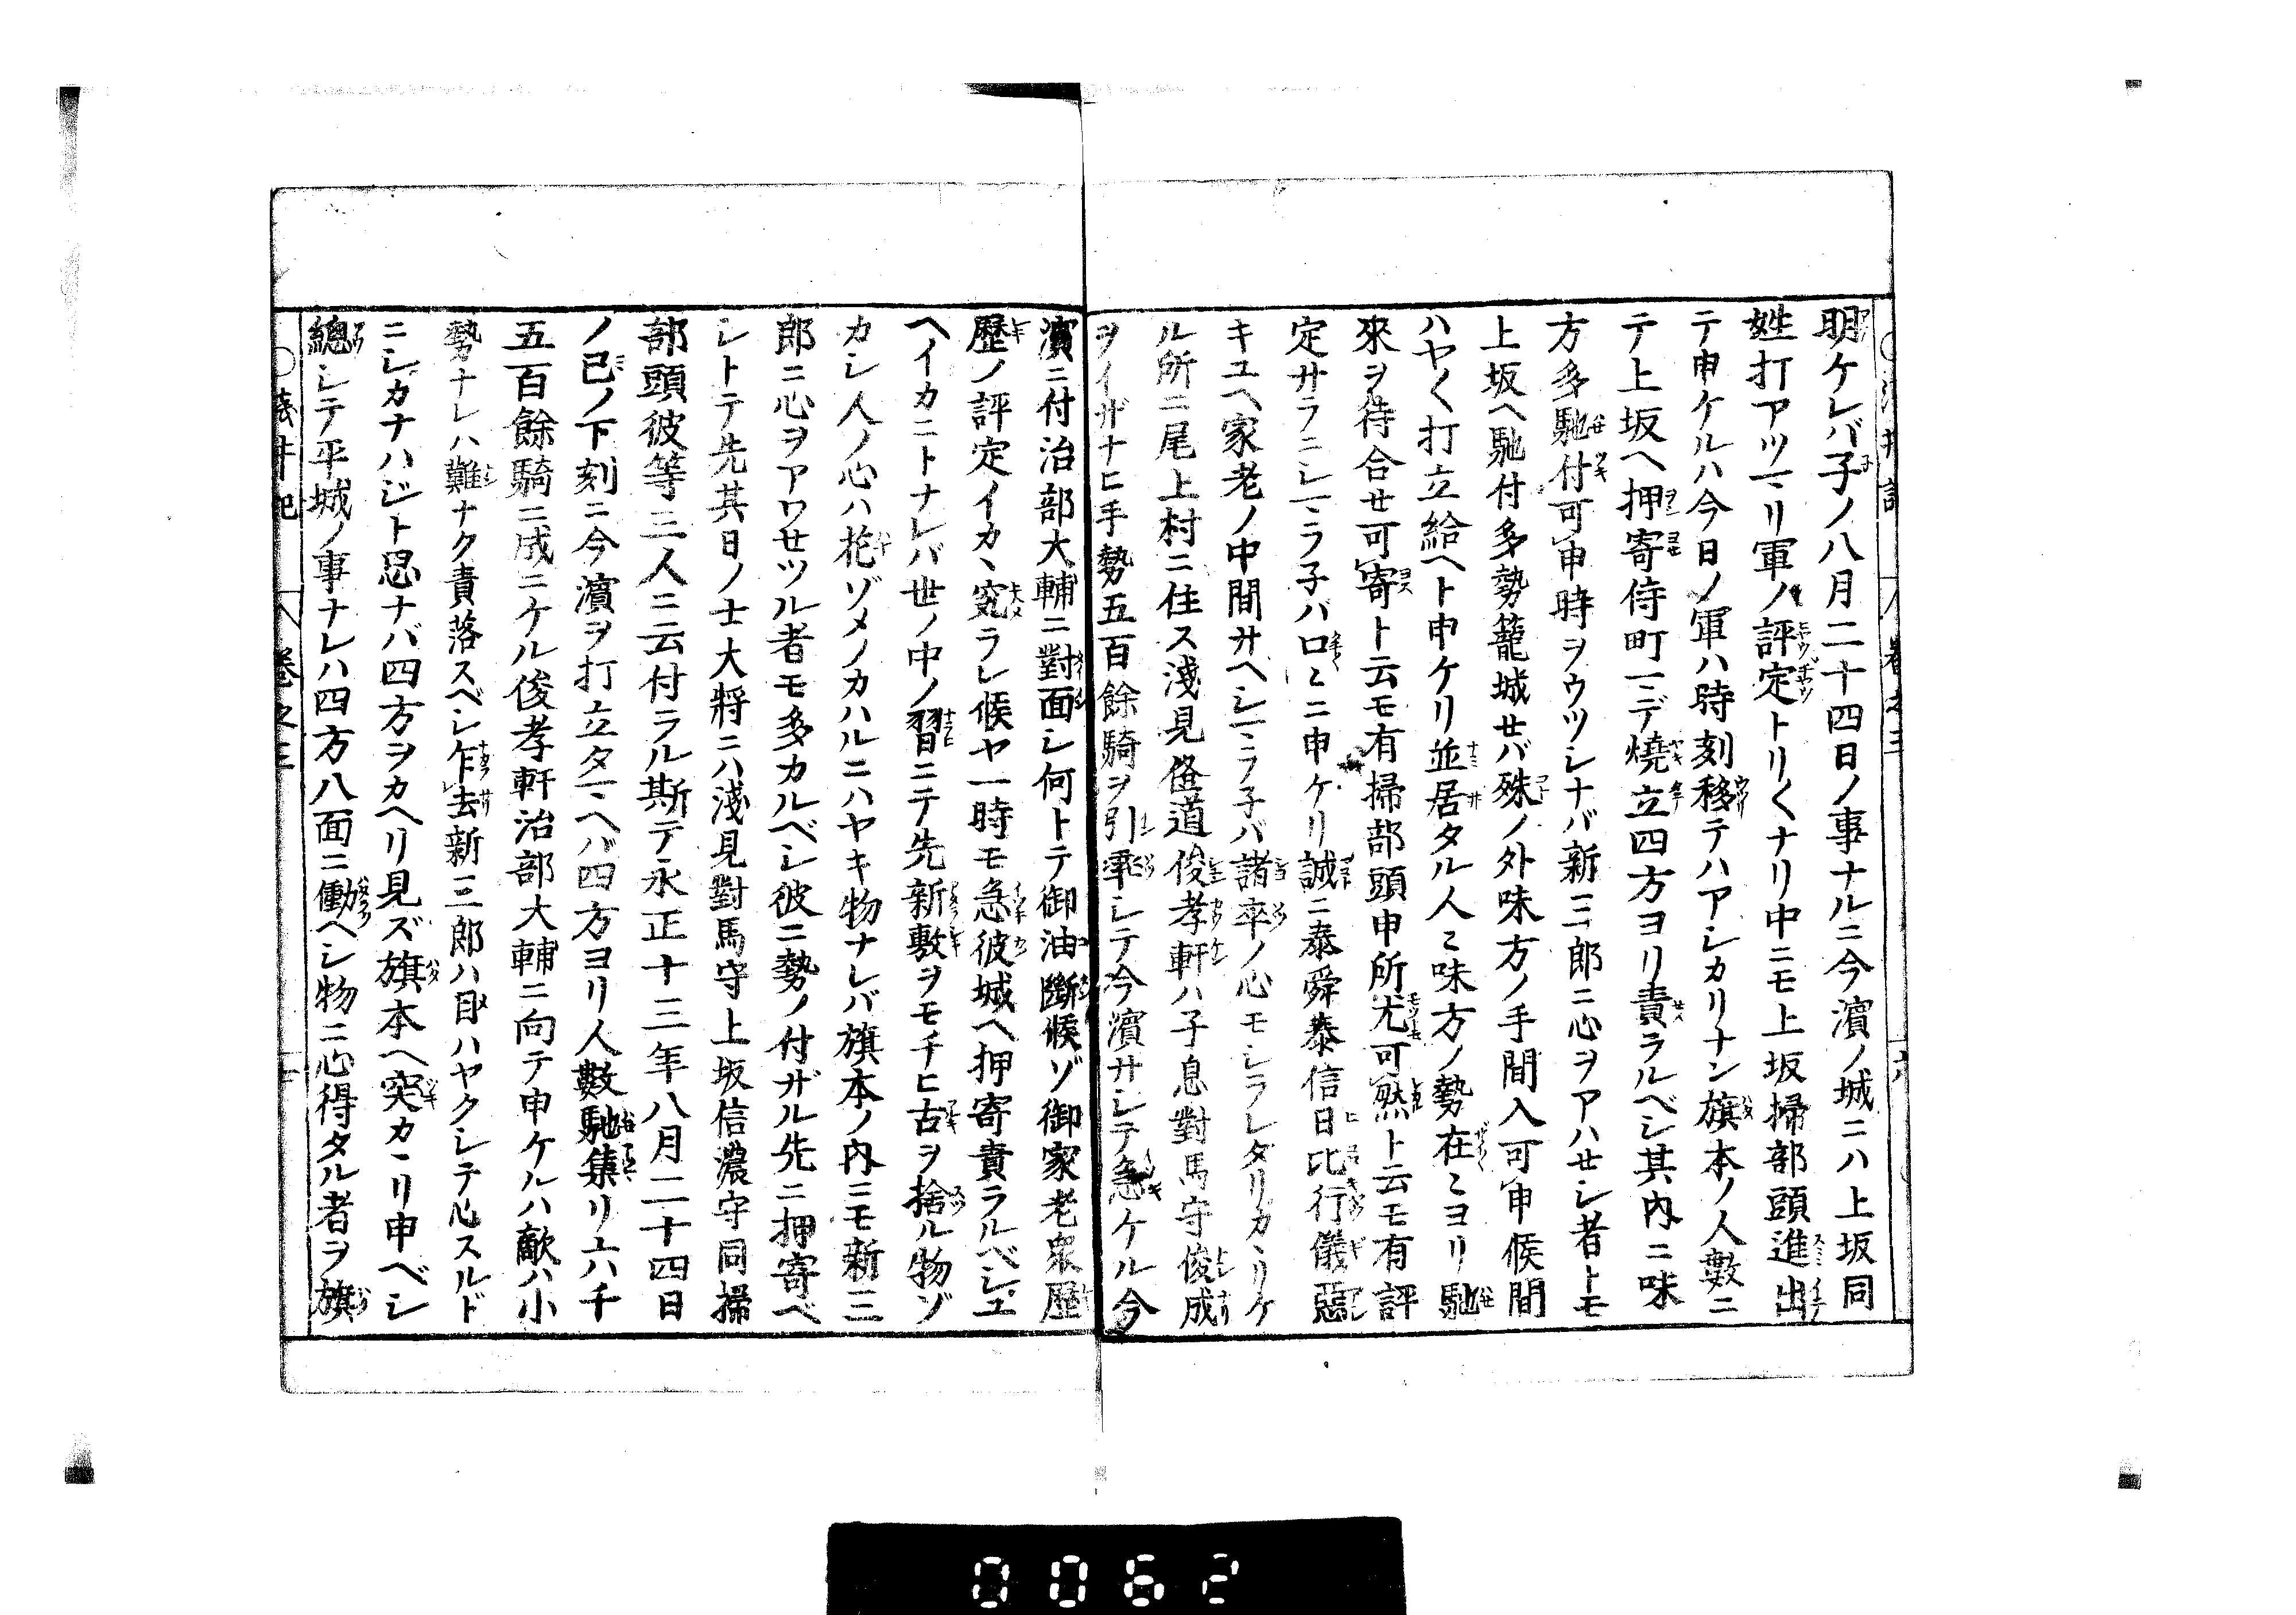 明ケレバ子ノ八月二十四日ノ事ナルニ今濱ノ城ニハ上坂同
姓打アツマリ軍ノ評定トリ〱ナリ中ニモ上坂掃部頭進出
テ申ケルハ今日ノ軍ハ時刻移テハアシカリナン旗本ノ人數ニ
テ上坂へ押寄侍町マデ燒立四方ヨリ責ラルベシ其内ニ味
方多馳付可申時ヲウツシナバ新三郎ニ心ヲアハせシ者トモ
上坂へ馳付多勢籠城せバ殊ノ外味方ノ手間入可申候間
ハヤ〱打立給ヘト申ケリ並居タル人〻味方ノ勢在〻ヨリ馳
來ヲ待合せ可寄ト云モ有掃部頭申所尤可然ト云モ有評
定サラニシマラ子バ口〻ニ申ケリ誠ニ泰舜泰信日比行儀惡
キユヘ家老ノ中間サヘシマラ子バ諸卒ノ心モシラレタリカヽリケ
ル所ニ尾上村ニ住ス淺見俊道俊孝軒ハ子息對馬守俊成
ヲイザナヒ手勢五百餘騎ヲ引率シテ今濱サシテ急ケル今
濱ニ付治部大輔ニ對面シ何トテ御油斷候ゾ御家老衆歷
歷ノ評定イカヽ究ラレ候ヤ一時モ急彼城ヘ押寄責ラルベシユ
ヘイカニトナレバ世ノ中ノ習ニテ先新敷ヲモチヒ古ヲ捨ル物ゾ
カシ人ノ心ハ花ゾメノカハルニハヤキ物ナレバ旗本ノ内ニモ新三
郎ニ心ヲアワせツル者モ多カルベシ彼ニ勢ノ付ザル先ニ押寄ベ
シトテ先其日ノ士大將ニハ淺見對馬守上坂信濃守同掃
部頭彼等三人ニ云付ラル斯テ永正十三年八月二十四日
ノ巳ノ下刻ニ今濱ヲ打立タマヘバ四方ヨリ人數馳集リ六千
五百餘騎ニ成ニケル俊孝軒治部大輔ニ向テ申ケルハ敵ハ小
勢ナレハ難ナク責落スベシ乍去新三郎ハ目ハヤクシテ心スルド
ニシカナハジト思ナバ四方ヲカヘリ見ズ旗本ヘ突カヽリ申ベシ
總シテ平城ノ事ナレハ四方八面ニ働ヘシ物ニ心得タル者ヲ旗
卷之三
0062